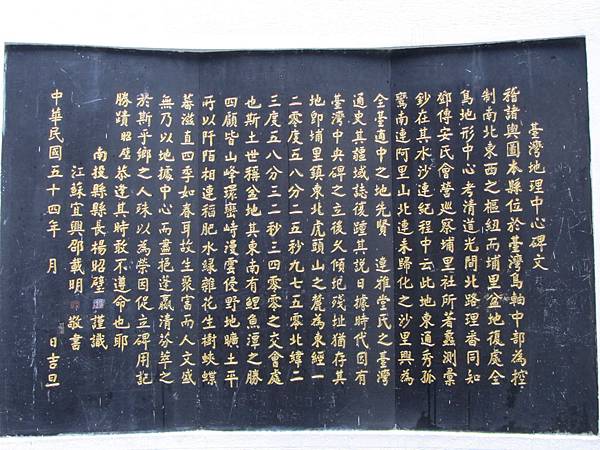 臺灣地理中心碑文
稽諸輿圖本縣位於臺灣島軸中部為控
制南北東西之樞紐而埔里盆地復處全
島地形中心考清道光間北路理番同知
鄧傳安民會營巡察埔里社所著蠡測彙
鈔在其水沙連紀程中云此地東通秀孤
鸞南連阿里山北連未歸化之沙里興為
全臺適中之地先賢 連雅堂氏之臺灣
通史其疆域誌復踵其說日據時代因有
臺灣中央碑之立後久傾圮殘址猶存其
地即埔里鎮東北虎頭山之麓為東經一
二零度五八分二五秒九七五零北緯二
三度五八分三二秒三四零零之交會處
也斯土世稱盆地其東南有鯉魚潭之勝
四顧皆山峰環巒峙漫雲侵野地曠土平
所以阡陌相連稻肥水綠雜花生樹蛺蝶
蕃滋直四季如春耳故生聚富而人文盛
無乃以地據中心而盡挹蓬瀛清芬萃之
於斯乎鄉之人殊以為榮因促立碑用記
勝蹟昭璧恭逢其時敢不遵命也耶
南投縣縣長楊昭璧 謹識
江蘇宜興邵載明 敬書
中華民國五十四年 月 日吉旦